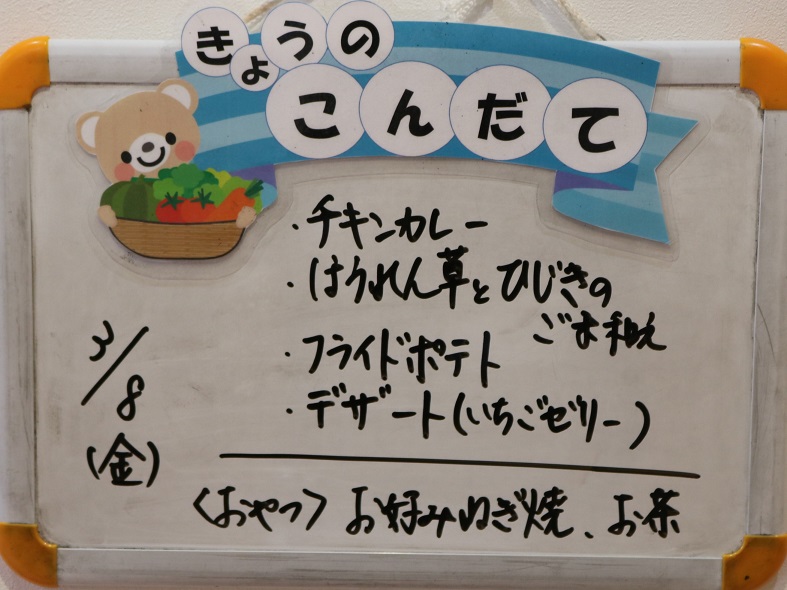 きょうの
こんだて
・チキンカレー
・ほうれん草とひじきの
ごま和え
・フライドポテト
・デザート(いちごゼリー)
3/8
(金)
〈おやつ〉お好みねぎ焼、お茶